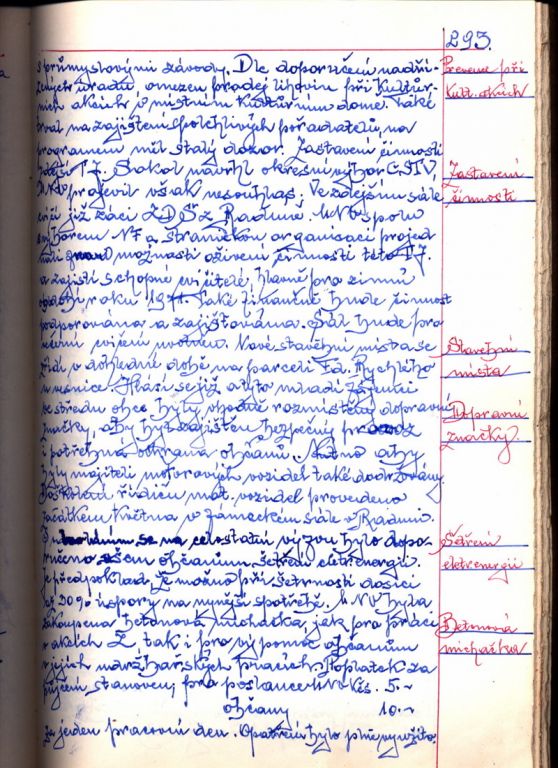 293.
s průmyslovými závody. Dle doporučení nadří-
zených úřadů, omezen prodej lihovin při kultur-
ních akcích i v místním kulturním domě. Také
trval na zajištění spolehlivých pořadatelů, na
programem měl stálý dozor. Zastavení činnosti
TJ. Sokol navrhl okresní výbor ČSTV,
MNV projevil však nesouhlas. Ve zdejším sále
cvičí již žáci ZDŠ z Raduně. MNV spolu
s výborem NF a stranickou organisací projed
možnosti oživení činnosti této TJ.
a zajistí schopné cvičitele, hlavně pro zimní
období roku Také finančně bude činnost
podporována a zajišťována. Sál bude pro
cvičení volném. Nové stavební místa se
v dohledné době na parceli Fd. Rychlého
Hlásí se již o tyto mladí zájemci
Ve středu obce byly vhodně rozmístěny dopravní
značky, aby byl zajištěn bezpečný provoz
i potřebná ochrana občanů. Nutno aby
byly majiteli motorových vozidel také dodržovány.
Školení řidičů mot. vozidel provedeno
začátkem května v zámeckém sále v Raduni.
se na celostatní výzvu bylo dopo-
ručeno všem občanům šetření eletrenergií.
Je předpoklad, že možno při šetrnosti docíci
až 20% úspory na nynější spotřebě. MNV byla
zakoupena betonová míchačka, jak pro práci
v akcích Z, tak i pro výpomoc občanům
v jejich údržbářských pracích. Poplatek za
půjčení stanovený pro poslance MNV Kčs. 5.-
občany 10.-
za jeden pracovní den. Opatření bylo plně využito.
Prevence při
Kult. akcích
Zastavení
činnosti
Stavební
místa
Dopravní
značky
Šetření
eletrenergií
Betonová
míchačka